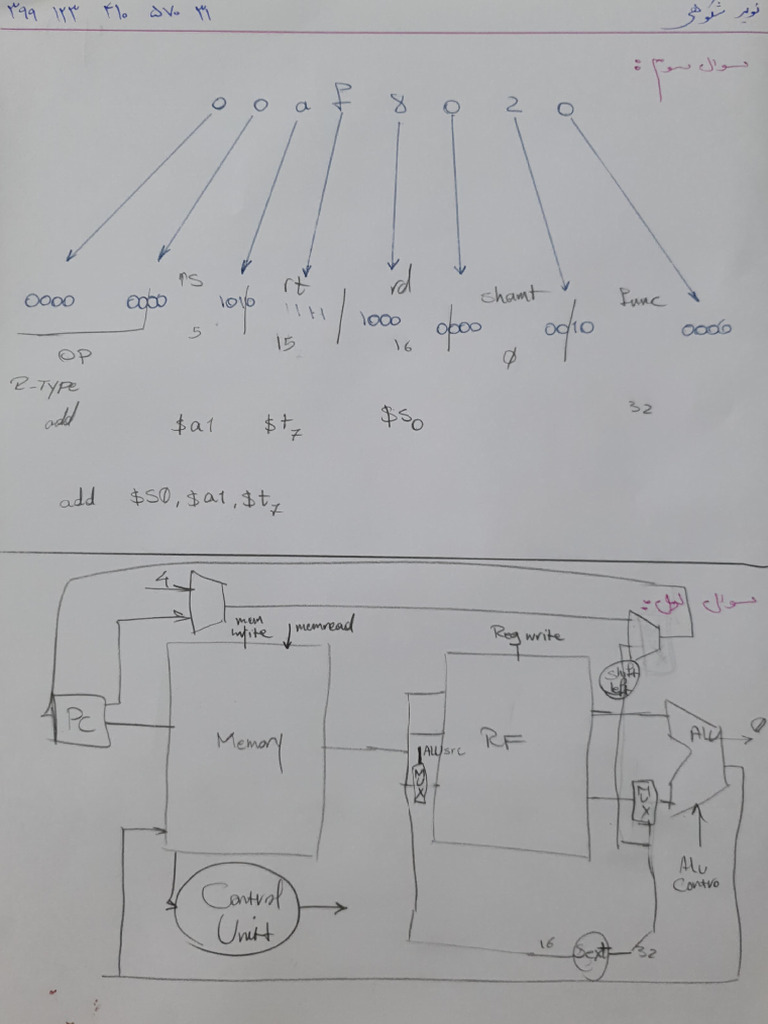 نوید شکوهی ۳۹۹ ۱۲۳ ۴۱۰ ۵۷۰ ۳۱
سوال سوم :
0 0 a f 8 0 2 0
rs rt rd shamt func
0000 0000 1010 1111 1000 0000 0010 0000
5 15 16 0
OP
R-TYPE
add $a1 $t7 $s0 32
add $s0, $a1, $t7
سوال اول :
4
mem write memread Reg write
shift left
PC Memory RF ALU 0
ALUsrc
MUX MUX
Alu Contro
Control Unit
16 Sext 32